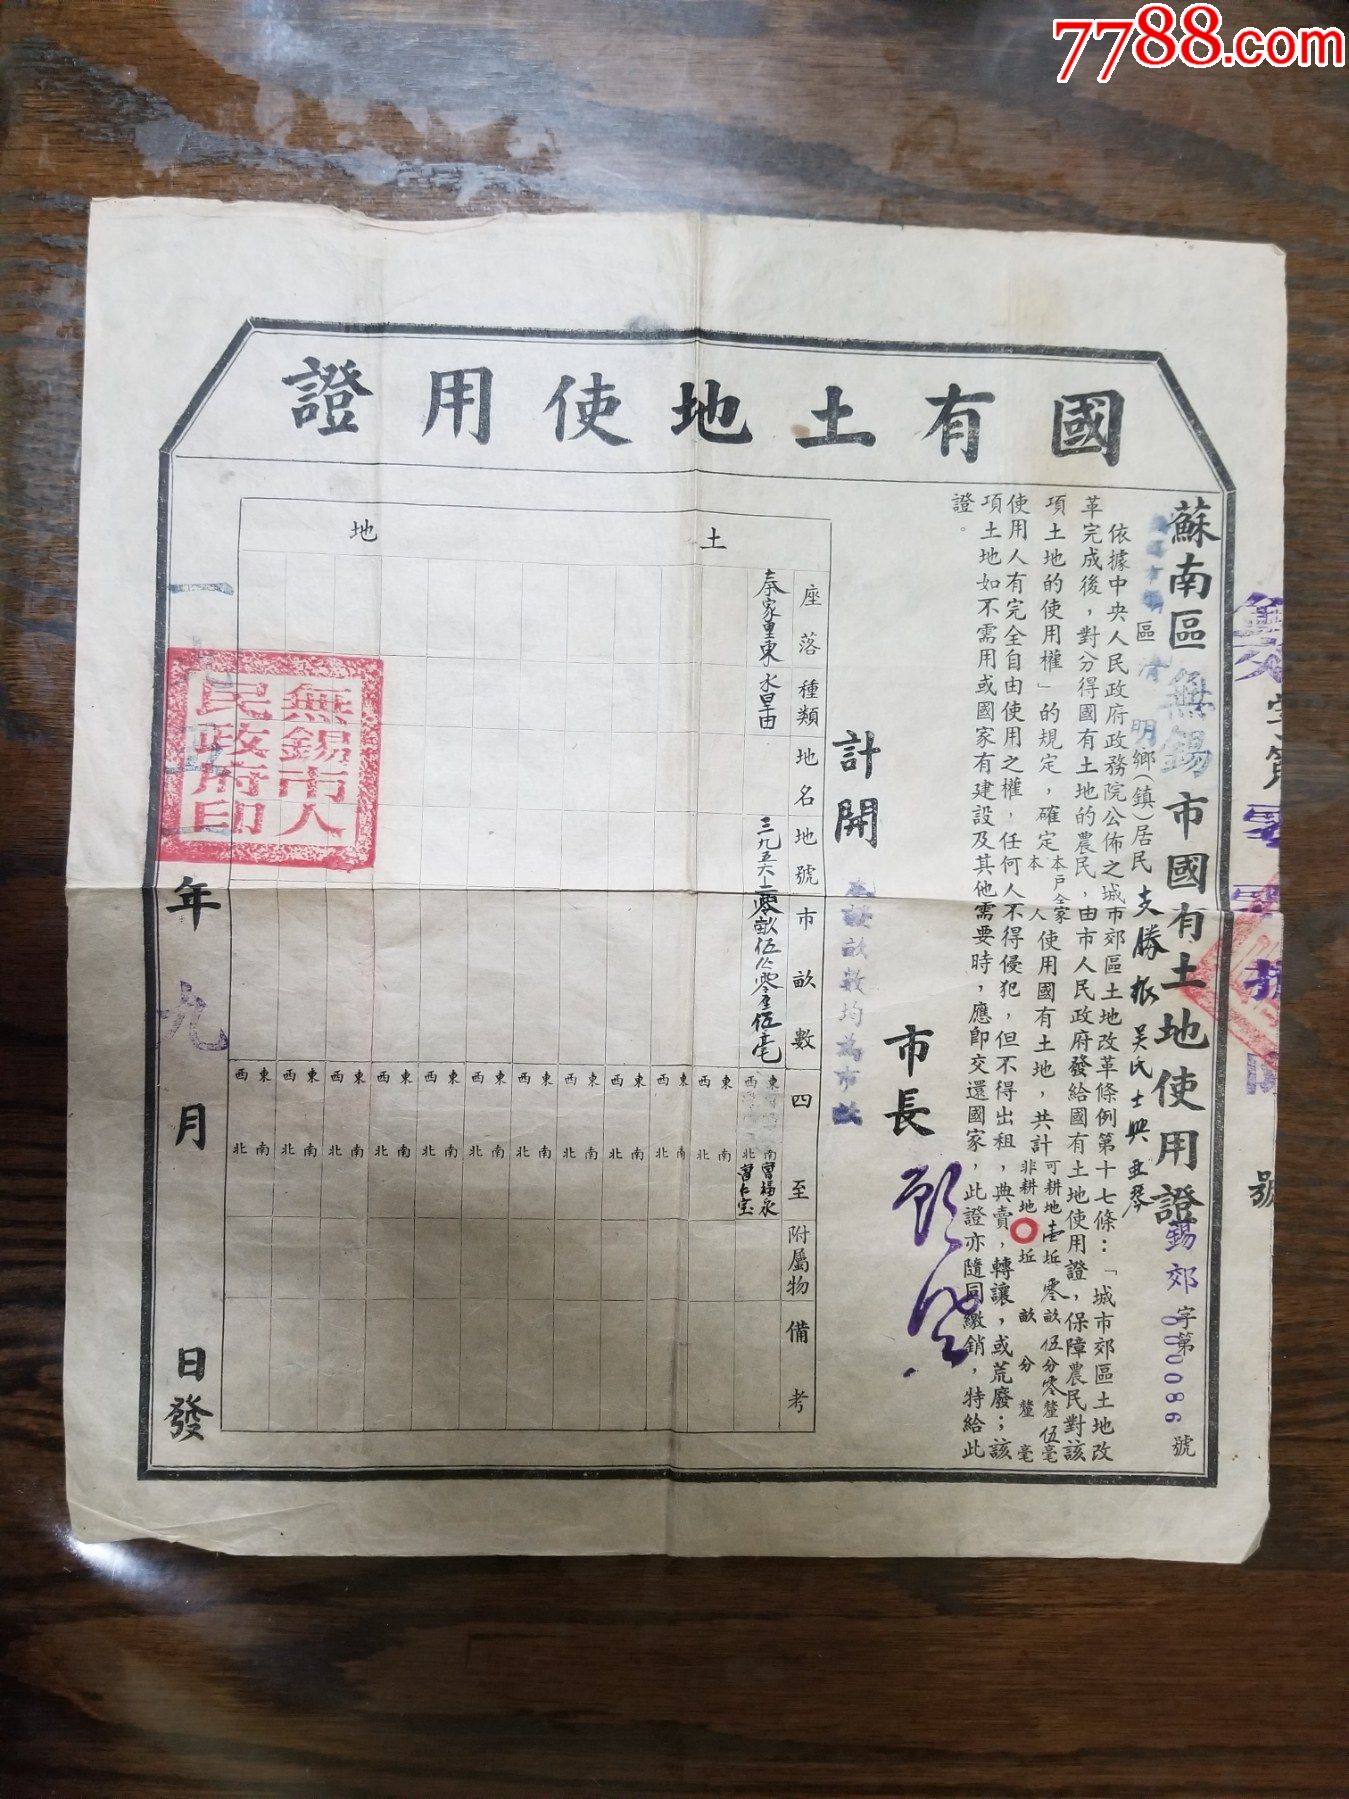 7788.com
國有土地使用證
蘇南區無錫市國有土地使用證錫郊字第000086號
區清明鄉(鎮)居民支勝根吳氏士興亚琴
依據中央人民政府政務院公佈之城市郊區土地改革條例第十七條:「城市郊區土地改
革完成後,對分得國有土地的農民,由市人民政府發給國有土地使用證,保障農民對該
項土地的使用權」的規定,確定本戶全家本人使用國有土地,共計可耕地壹坵零畝伍分零釐伍毫非耕地〇坵畝分釐毫
使用人有完全自由使用之權,任何人不得侵犯,但不得出租,典賣,轉讓,或荒廢;該
項土地如不需用或國家有建設及其他需要時,應即交還國家,此證亦隨同繳銷,特給此
證。
市長
計開
畝數均為市畝
土地
座落種類地名地號市畝數四至附屬物備考
秦家里東水旱田三九五六零畝伍分零釐伍毫
東西南曹楊泉北曹仁宝
東西南北
東西南北
東西南北
東西南北
東西南北
東西南北
東西南北
東西南北
東西南北
東西南北
一九五一年九月日發
無錫市人民政府印
字第零零號